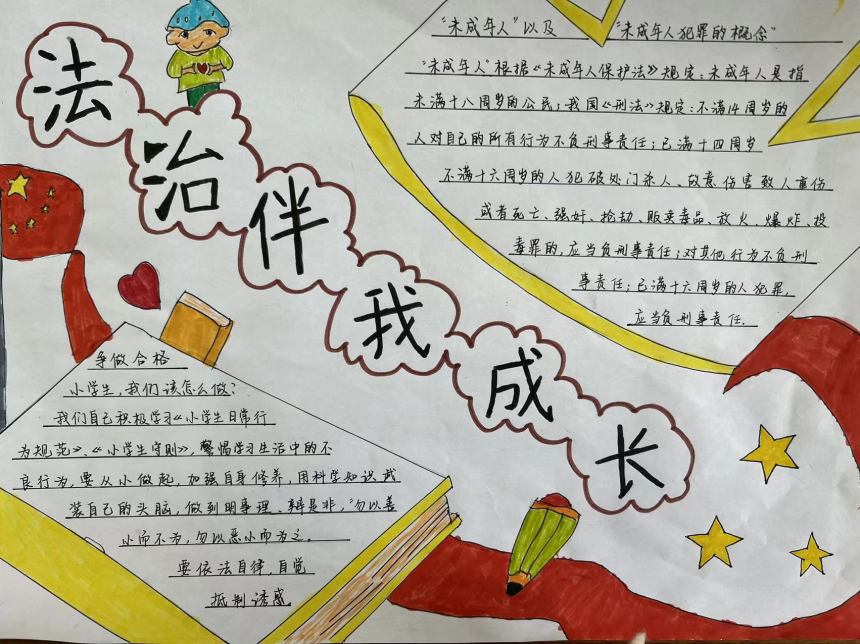 法治伴我成长
“未成年人”以及“未成年人犯罪的概念”
“未成年人”根据《未成年人保护法》规定：未成年人是指
未满十八周岁的公民；我国《刑法》规定：不满14周岁的
人对自己的所有行为不负刑事责任；已满十四周岁
不满十六周岁的人犯破处门杀人、故意伤害致人重伤
或者死亡、强奸、抢劫、贩卖毒品、放火、爆炸、投
毒罪的，应当负刑事责任；对其他行为不负刑
事责任；已满十六周岁的人犯罪，
应当负刑事责任.
争做合格
小学生，我们该怎么做？
我们自己积极学习《小学生日常行
为规范》、《小学生守则》，警惕学习生活中的不
良行为，要从小做起，加强自身修养，用科学知识武
装自己的头脑，做到明事理、辩是非，“勿以善
小而不为，勿以恶小而为之。
要依法自律，自觉
抵制诱惑